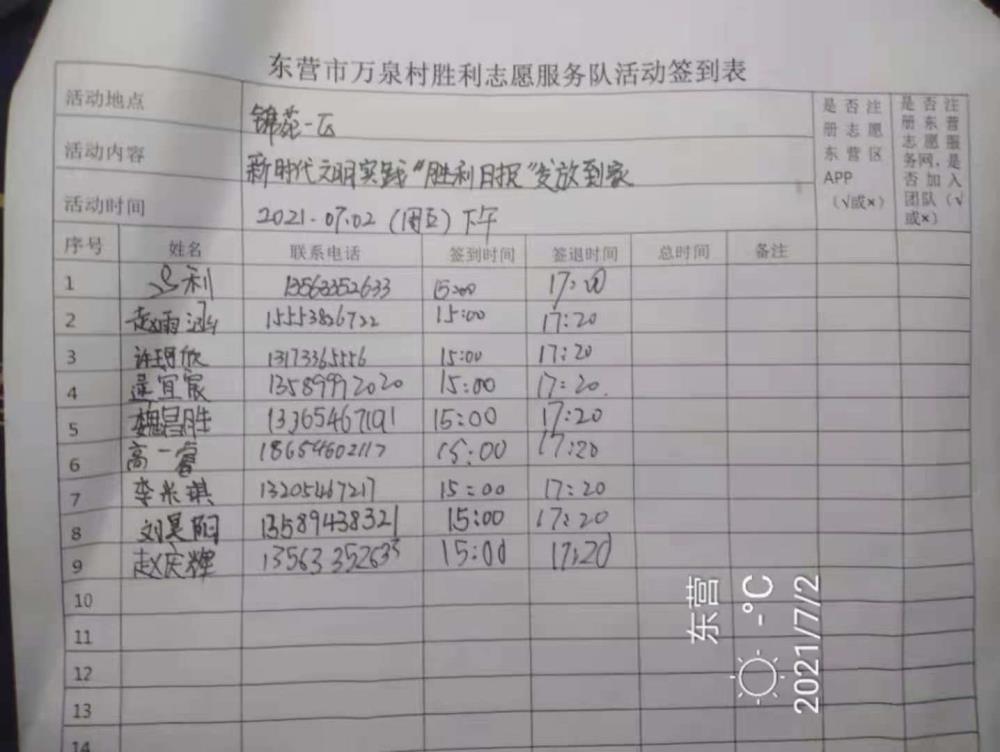 东营市万泉村胜利志愿服务队活动签到表
活动地点 锦苑一区
活动内容 新时代文明实践“胜利日报”发放到家
活动时间 2021.07.02 (周五) 下午
是否注册志愿东营区APP（√或×）
是否注册东营志愿服务网，是否加入团队（√或×）
序号 姓名 联系电话 签到时间 签退时间 总时间 备注
1 利 13563352633 15:00 17:00
2 赵雨涵 15553826722 15:00 17:20
3 许珂欣 13173365556 15:00 17:20
4 宜宸 13589972020 15:00 17:20
5 魏昌胜 13365467191 15:00 17:20
6 高一睿 18654602117 15:00 17:20
7 李米琪 13205467217 15:00 17:20
8 刘昊阳 13589438321 15:00 17:20
9 赵庆辉 13563352633 15:00 17:20
10
11
12
13
14
东营 -°C
2021/7/2